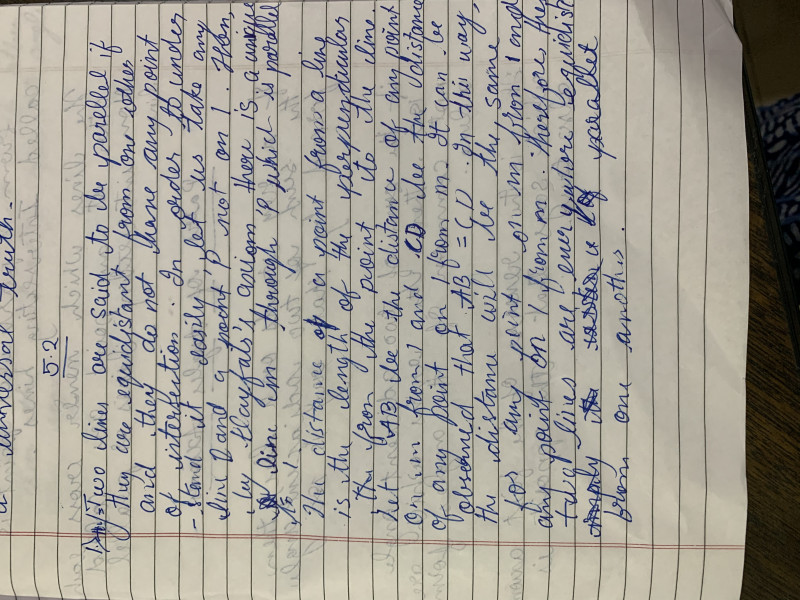 universal truth.
5.2
1) Ans = Two lines are said to be parallel if
they are equidistant from one other
and they do not have any point
of intersection. In order to under
- stand it easily, let us take any
line l and a point p not on l. Then,
by Playfair's axiom there is a unique
line m through P which is parallel
to l.
The distance of a point from a line
is the length of the perpendicular
from the point to the line.
Let AB be the distance of any point
on m from l and CD be the distance
of any point on l from m. It can be
observed that AB = CD. In this way,
the distance will be the same
for any point on m from l and
any point on l from m. Therefore, these
two lines are everywhere equidistant
parallel
from one another.